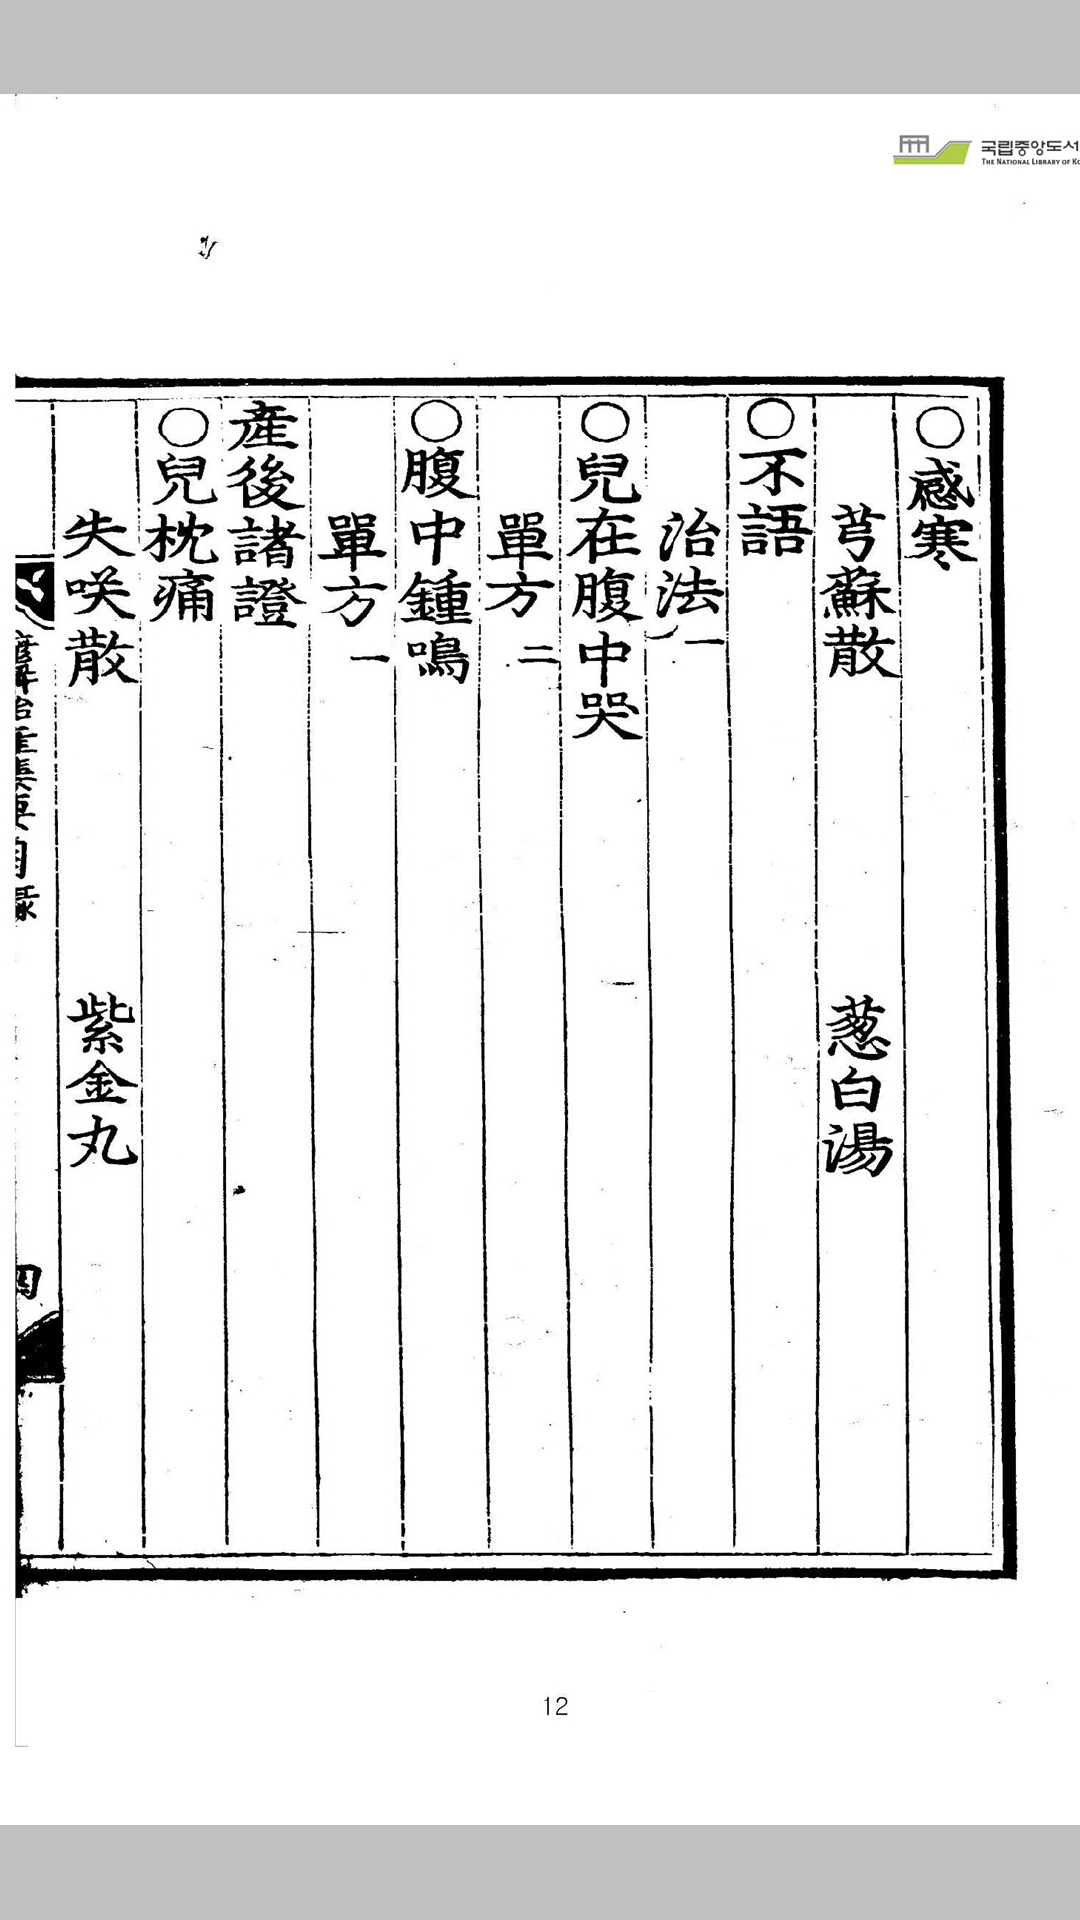 국립중앙도서
THE NATIONAL LIBRARY OF KO
○感寒
芎蘇散 葱白湯
○不語
治法一
○兒在腹中哭
單方二
○腹中鍾鳴
單方一
産後諸證
○兒枕痛
失咲散 紫金丸
目錄
四
12